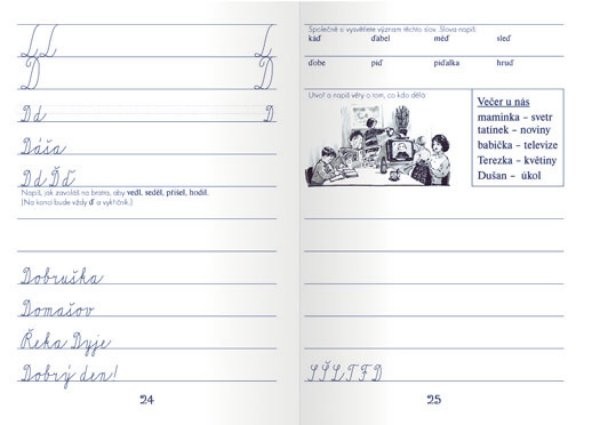 L L L
D D
D d D
Dáša
D d Ď ď
Napiš, jak zavoláš na bratra, aby vedl, seděl, přišel, hodil.
(Na konci bude vždy ď a vykřičník.)
Dobruška
Domašov
Řeka Dyje
Dobrý den!
24
Společně si vysvětlete význam těchto slov. Slova napiš.
káď ďábel měď sleď
ďobe píď píďalka hruď
Utvoř a napiš věty o tom, co kdo dělá.
Večer u nás
maminka – svetr
tatínek – noviny
babička – televize
Terezka – květiny
Dušan – úkol
S Š L T F D
25